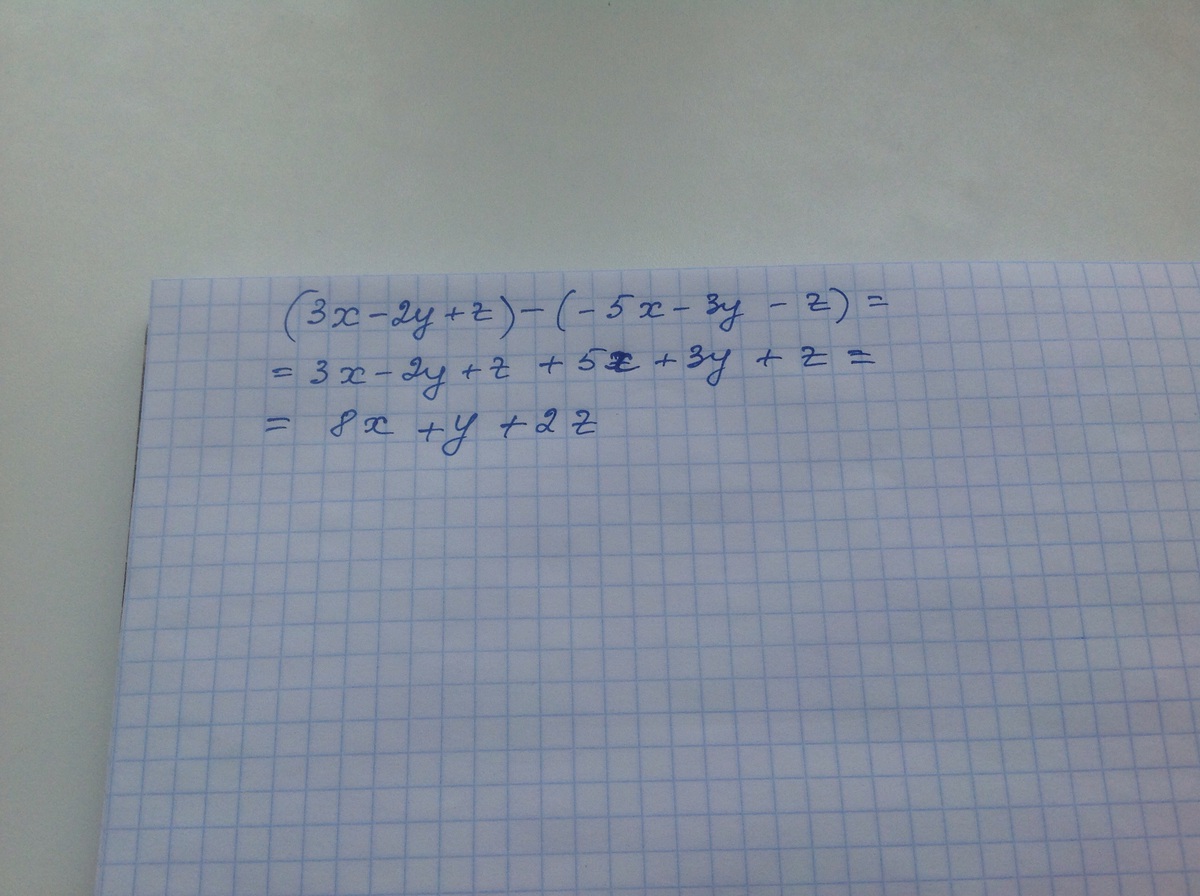 (3x-2y+z)-(-5x-3y-z)=
=3x-2y+z+5x+3y+z=
=8x+y+2z